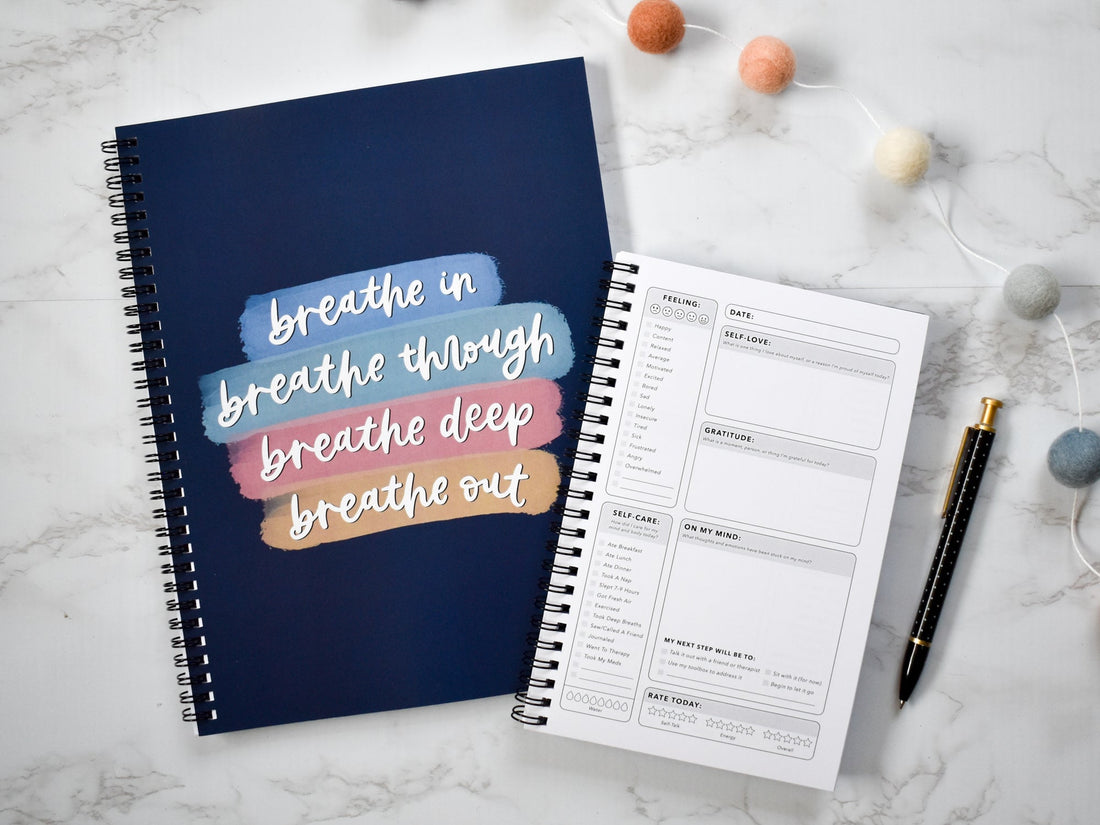 breathe in
breathe through
breathe deep
breathe out
FEELING:
Happy
Content
Relaxed
Average
Motivated
Excited
Bored
Sad
Lonely
Insecure
Tired
Sick
Frustrated
Angry
Overwhelmed
SELF-CARE:
How did I care for my
mind and body today?
Ate Breakfast
Ate Lunch
Ate Dinner
Took A Nap
Slept 7-9 Hours
Got Fresh Air
Exercised
Took Deep Breaths
Saw/Called A Friend
Journaled
Went To Therapy
Took My Meds
Water
DATE:
SELF-LOVE:
What is one thing I love about myself, or a reason I'm proud of myself today?
GRATITUDE:
What is a moment, person, or thing I'm grateful for today?
ON MY MIND:
What thoughts and emotions have been stuck on my mind?
MY NEXT STEP WILL BE TO:
Talk it out with a friend or therapist
Sit with it (for now)
Use my toolbox to address it
Begin to let it go
RATE TODAY:
Self-Talk
Energy
Overall